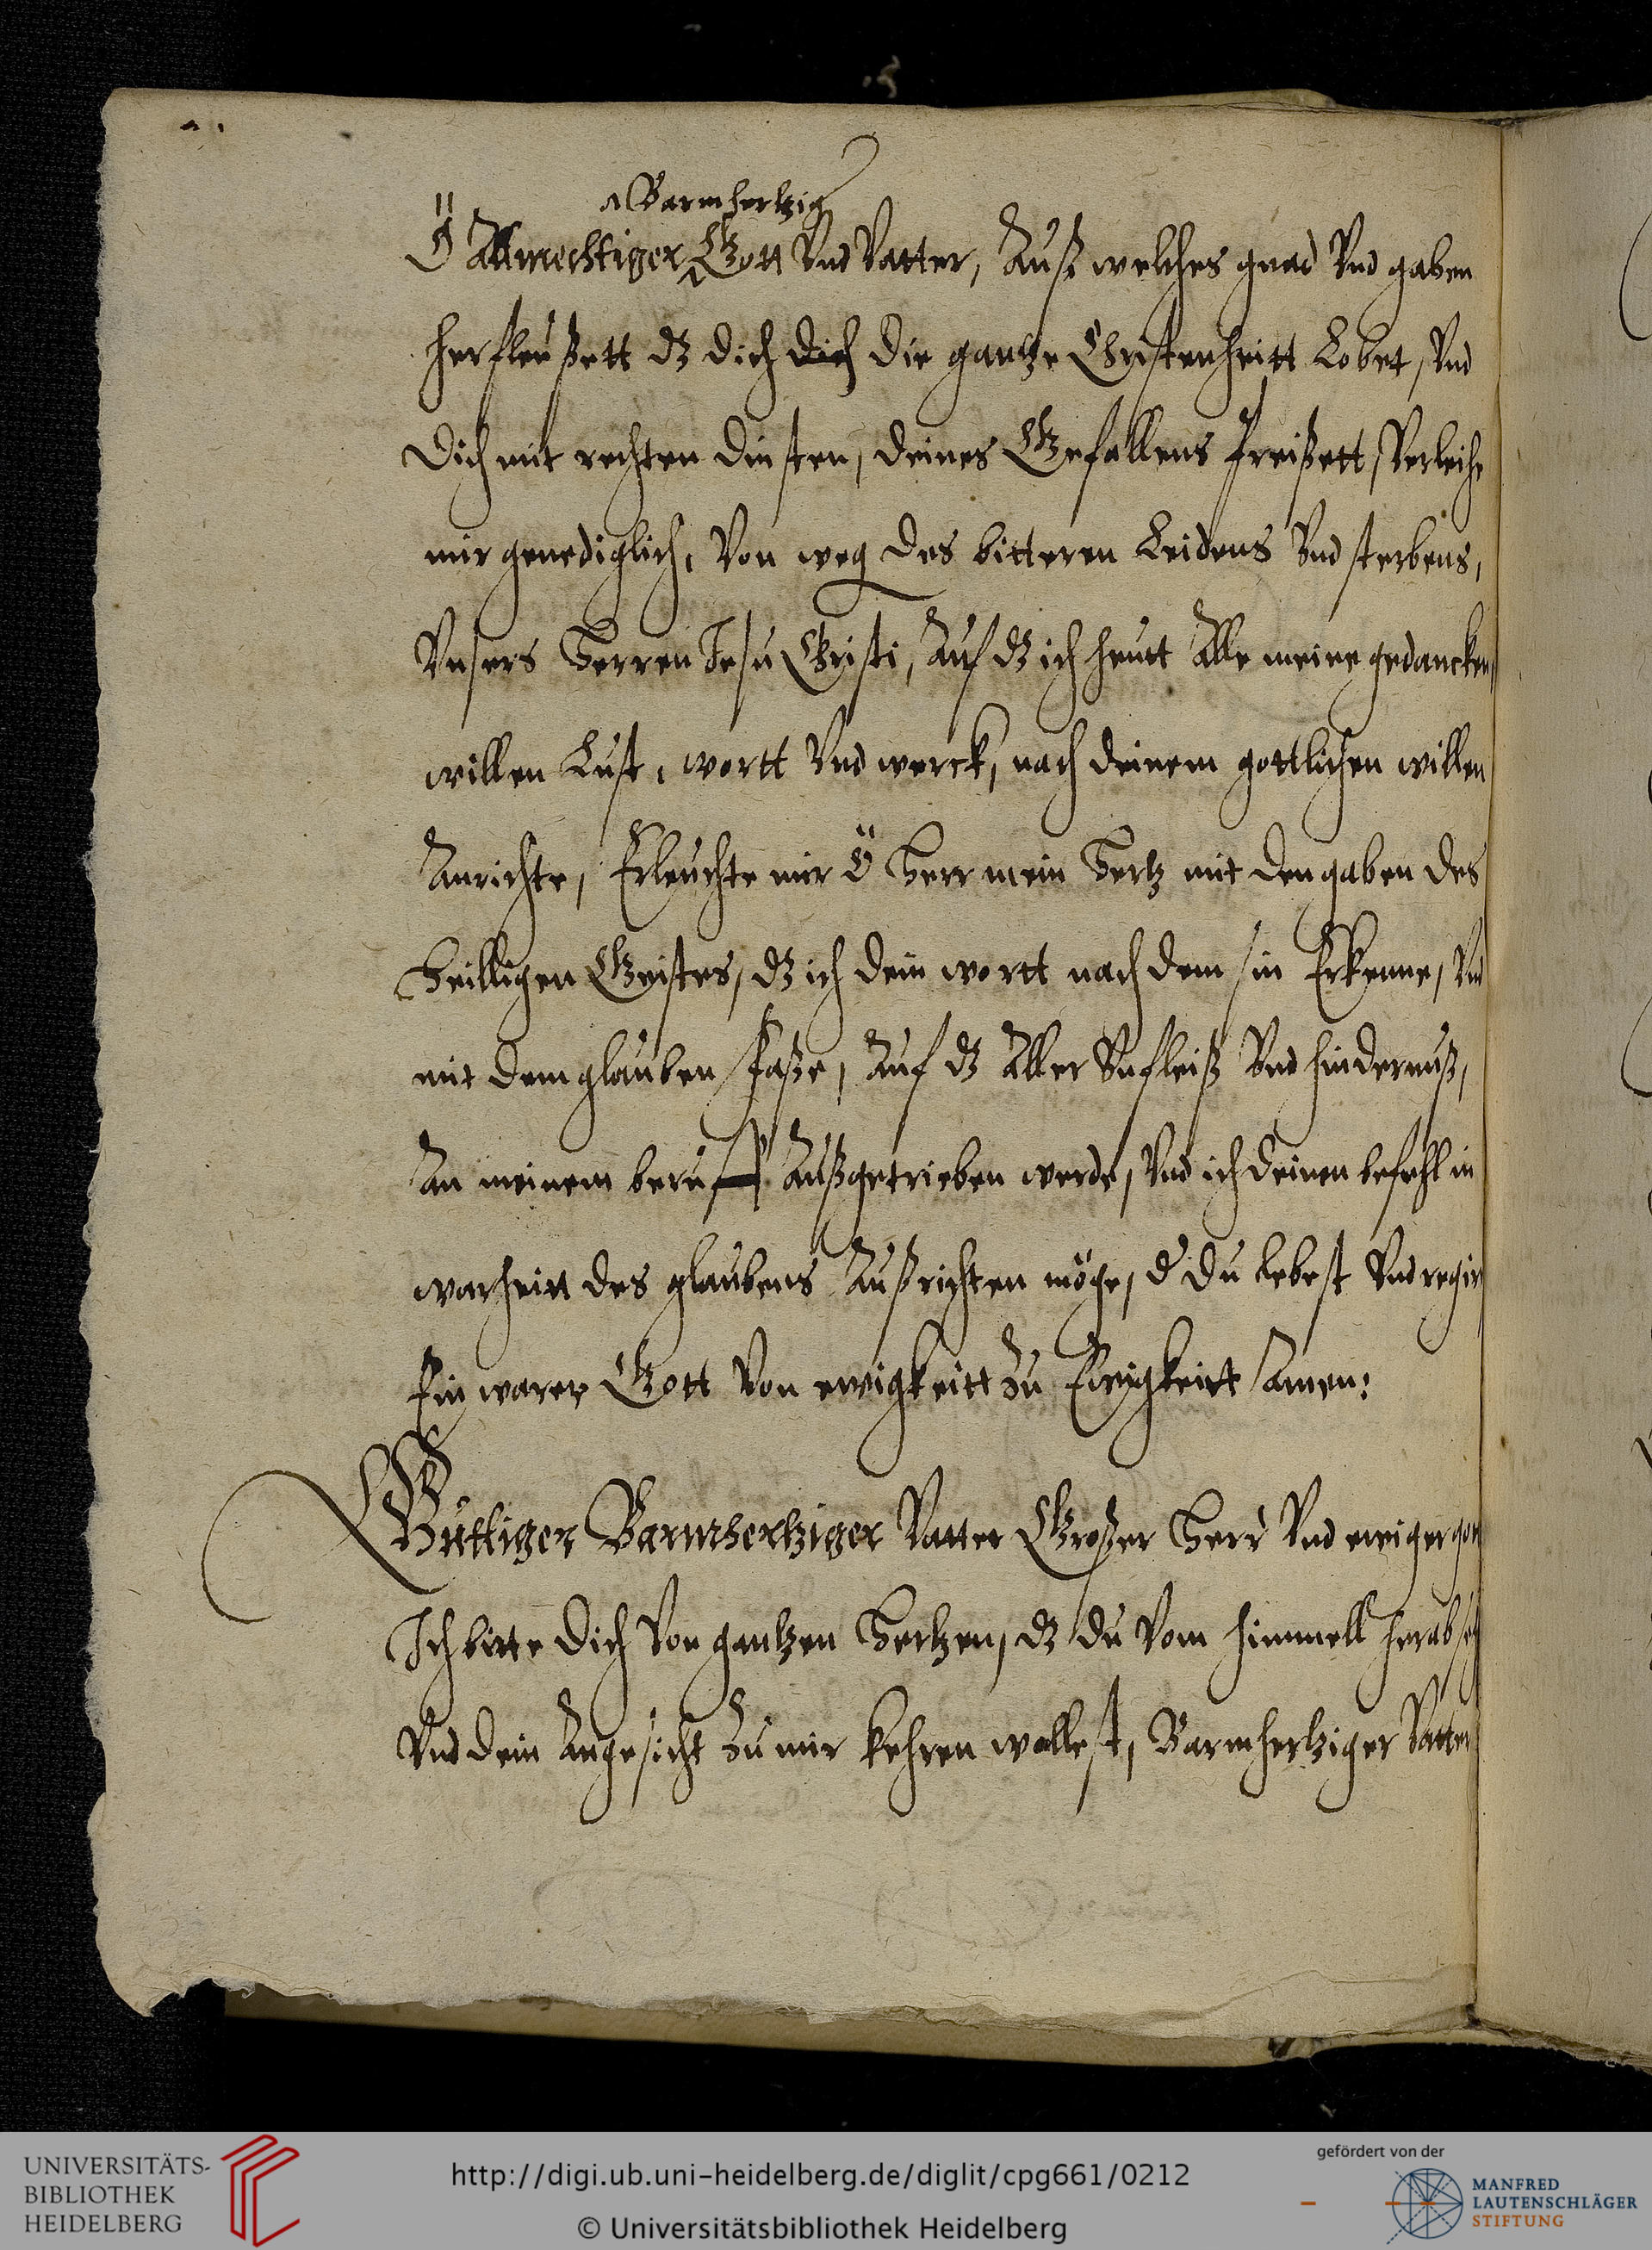 Barmhertzig
Ö Allmechtiger Gott Vnd Vatter, Auß welches gnad Vnd gaben
herfleußett dz dich dich die gantze Christenheitt Lobet, Vnd
Dich mit rechten dinsten, deines Gefallens Preißett, Verleihe
mir genediglich, Von weg des bitteren Leidens Vnd sterbens,
Vnsers Herren Jesu Christi, Auf dz ich heutt Alle meine gedancken,
willen Lust, wortt Vnd werck, nach deinem gottlichen willen
Anrichte, Erleuchte mir Ö Herr mein Hertz mit den gaben des
Heilligen Geistes, dz ich dein wortt nach dem sin Erkenne, Vnd
mit dem glauben faße, Auf dz Aller Vnfleiß Vnd hindernuß,
An meinem beruff Außgetrieben werde, Vnd ich deinen befehl in
warheitt des glaubens Außrichten möge, d' du lebest Vnd regir
Ein warer Gott Von ewigkeitt zu Ewigkeitt Amen:
Güttiger Barmhertziger Vatter Großer Herr Vnd ewiger gott
Ich bitte dich Von gantzen Hertzen, dz du Vom himmell herab seh
Vnd dein Angesicht zu mir kehren wollest, Barmhertziger Vatter
UNIVERSITÄTS-
BIBLIOTHEK
HEIDELBERG
http://digi.ub.uni-heidelberg.de/diglit/cpg661/0212
© Universitätsbibliothek Heidelberg
gefördert von der
MANFRED
LAUTENSCHLÄGER
STIFTUNG